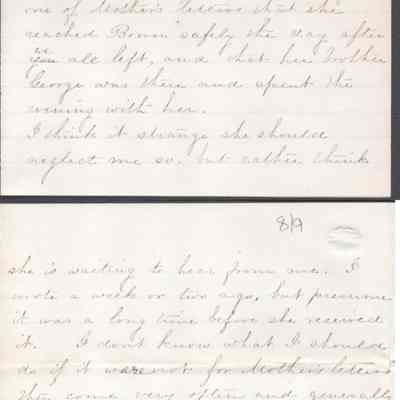 one of Mother's letters that she
reached Bonn safely the day after
we all left, and that her brother
George was there and spent the
evening with her.
I think it strange she should
neglect me so, but rather think
8/9
she is waiting to hear from me. I
wrote a week or two ago, but presume
it was a long time before she received
it. I don't know what I should
do if it were not for Mother's letters
They come very often and generally